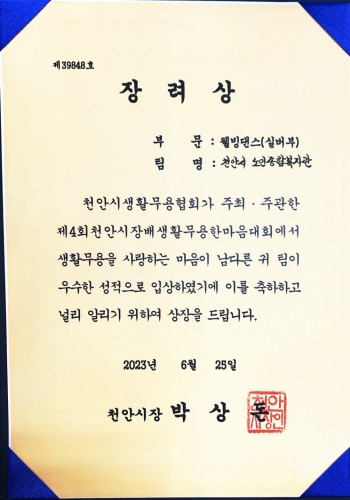 제39848호
장 려 상
부 문 : 웰빙댄스(실버부)
팀 명 : 천안시 노인종합복지관
천안시생활무용협회가 주최 · 주관한
제4회천안시장배생활무용한마음대회에서
생활무용을 사랑하는 마음이 남다른 귀 팀이
우수한 성적으로 입상하였기에 이를 축하하고
널리 알리기 위하여 상장을 드립니다.
2023년 6월 25일
천안시장 박 상 돈
천안
시장인